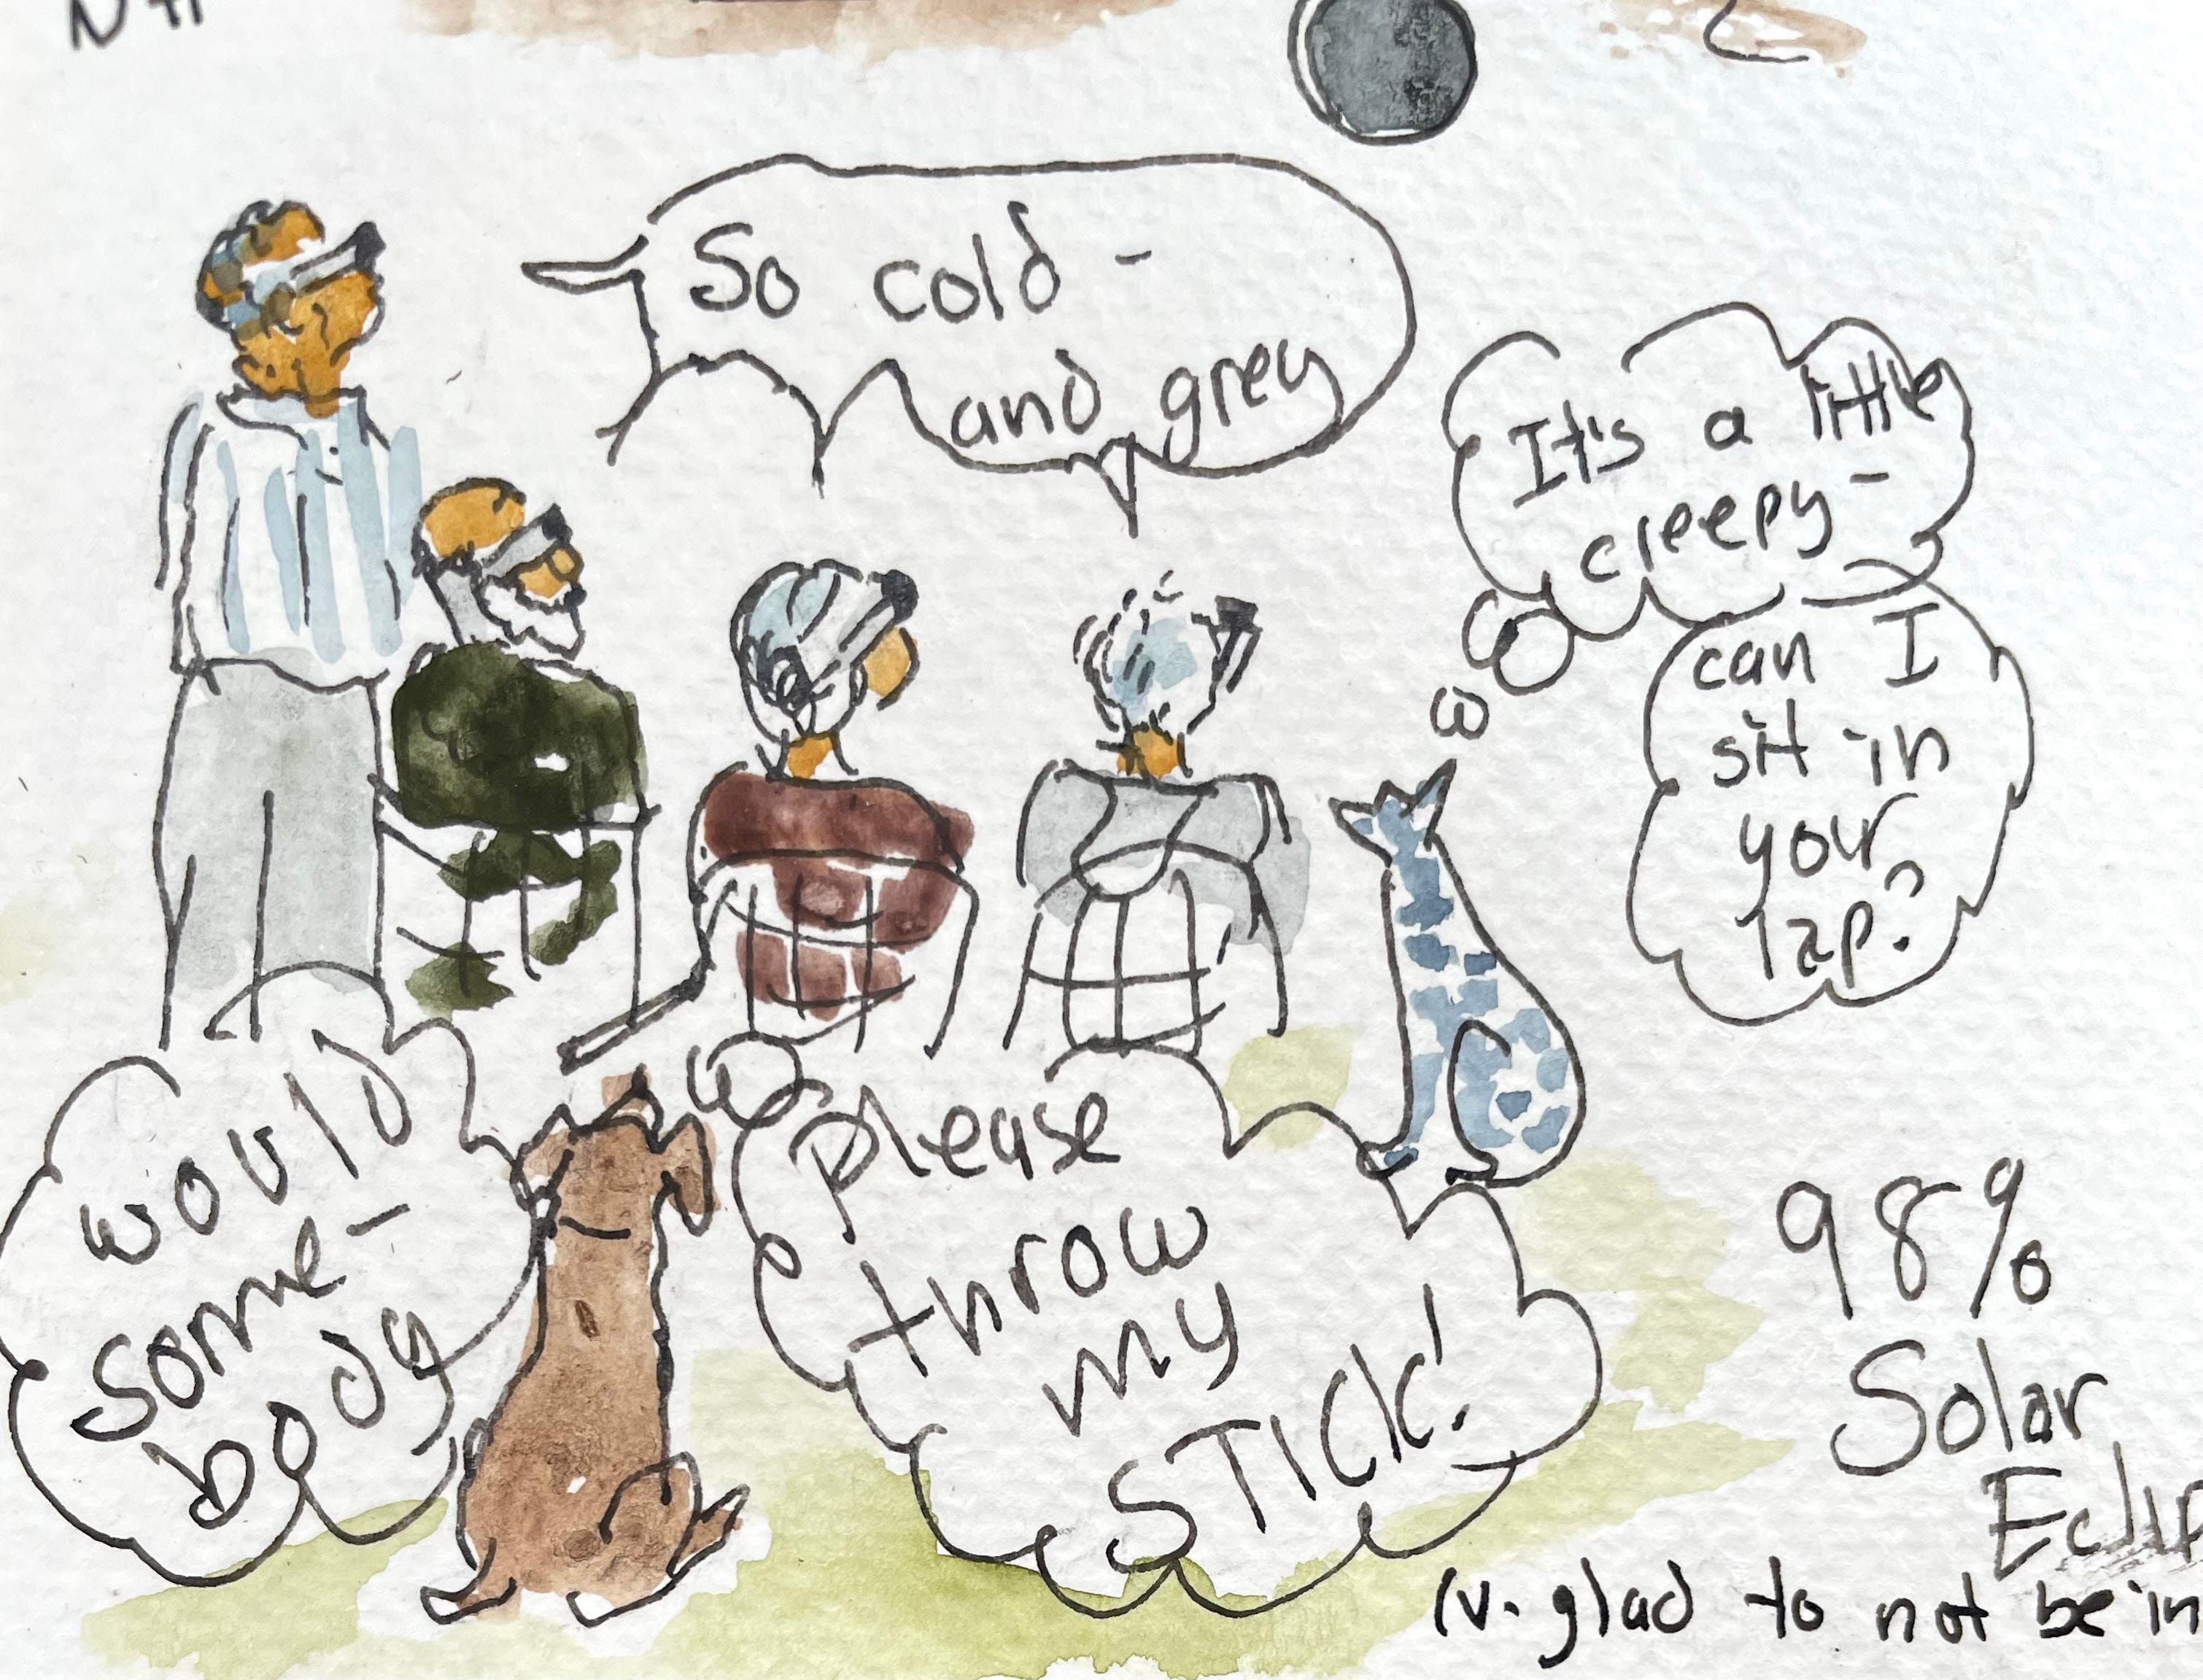 So cold -
and grey
It's a little
creepy -
can I
sit in
your
lap?
would
some-
body
Please
throw
my
STICK!
98%
Solar
(v. glad to not be in